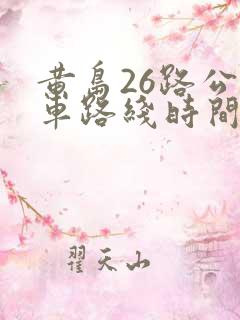 黄島26路公
車路綫時間
翟天山